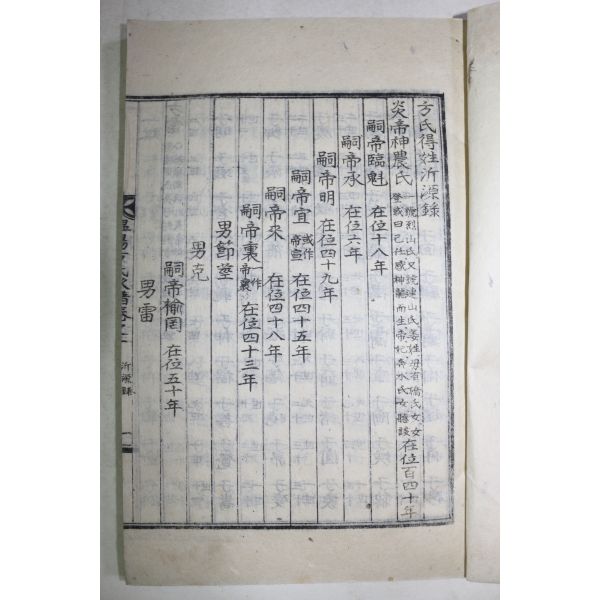 方氏得姓沂源錄
炎帝神農氏 一號烈山氏又號連山氏姜姓母有僑氏女女登或曰己姓感神龍而生帝妃奔水氏女聽詙 在位百四十年
嗣帝臨魁 在位十八年
嗣帝承 在位六年
嗣帝明 在位四十九年
嗣帝宜 或作帝宣 在位四十五年
嗣帝來 在位四十八年
嗣帝裏 一作帝襄 在位四十三年
男節莖
男克
嗣帝榆罔 在位五十年
男雷
溫陽方氏
沂源錄